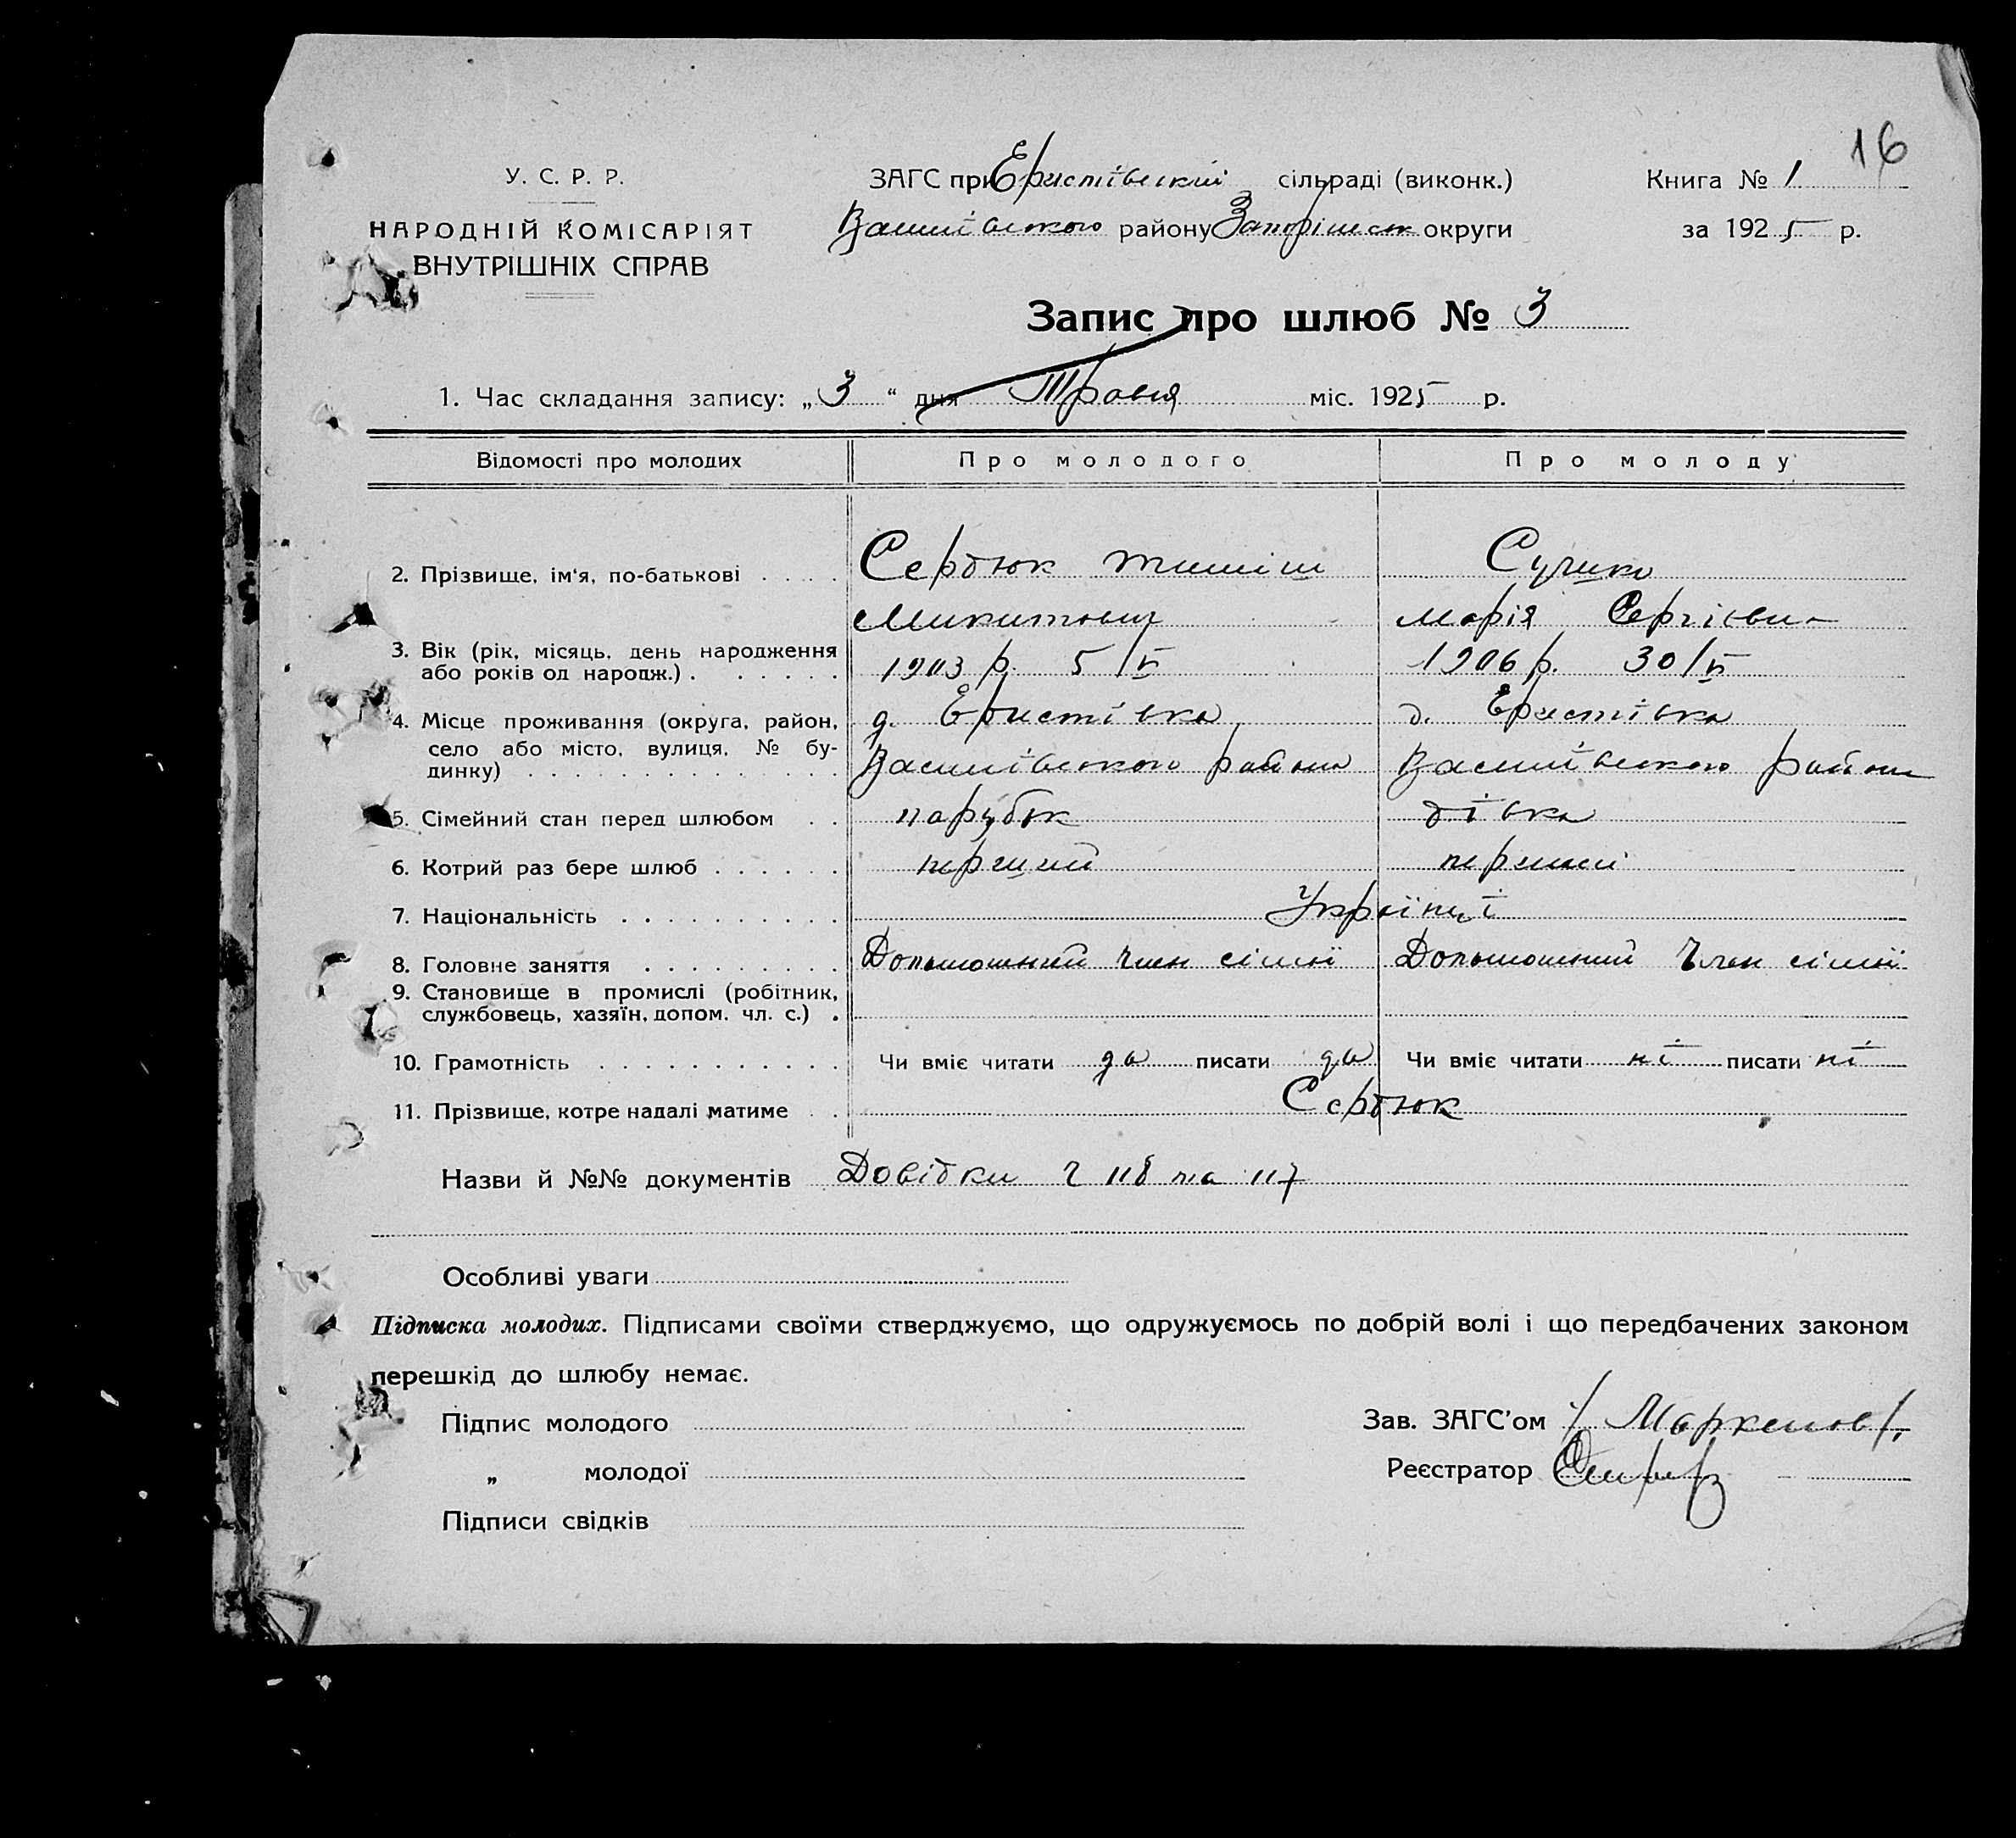 16
У. С. Р. Р.
НАРОДНІЙ КОМІСАРІЯТ
ВНУТРІШНІХ СПРАВ
ЗАГС при Єристівський сільраді (виконк.)
Василівського району округи
Книга № 1
за 1925 р.
Запис про шлюб № 3
1. Час складання запису: „3“ дня Травня міс. 1925 р.
Відомості про молодих Про молодого Про молоду
2. Прізвище, ім'я, по-батькові . . . . Сердюк Сушко
Микитович Марія Сергієвн
3. Вік (рік, місяць, день народження
або років од народж.) . . . . . . 1903 р. 5/ 1906 р. 30/
4. Місце проживання (округа, район, д. Єристівка д. Єристівка
село або місто, вулиця, № бу-
динку) . . . . . . . . . . . . . . Василівського района Василівського района
5. Сімейний стан перед шлюбом . . парубок дівка
6. Котрий раз бере шлюб . . . . . . перший перший
7. Національність . . . . . . . . . . Українці
8. Головне заняття . . . . . . . . . Допомошний член сімні Допомошний Член сімні
9. Становище в промислі (робітник,
службовець, хазяїн, допом. чл. с.) .
10. Грамотність . . . . . . . . . . . Чи вміє читати да писати да Чи вміє читати ні писати ні
11. Прізвище, котре надалі матиме . . Сердюк
Назви й №№ документів Довідки Ч 118 та 117
Особливі уваги
Підписка молодих. Підписами своїми стверджуємо, що одружуємось по добрій волі і що передбачених законом
перешкід до шлюбу немає.
Підпис молодого
„ молодої
Підписи свідків
Зав. ЗАГС'ом
Реєстратор